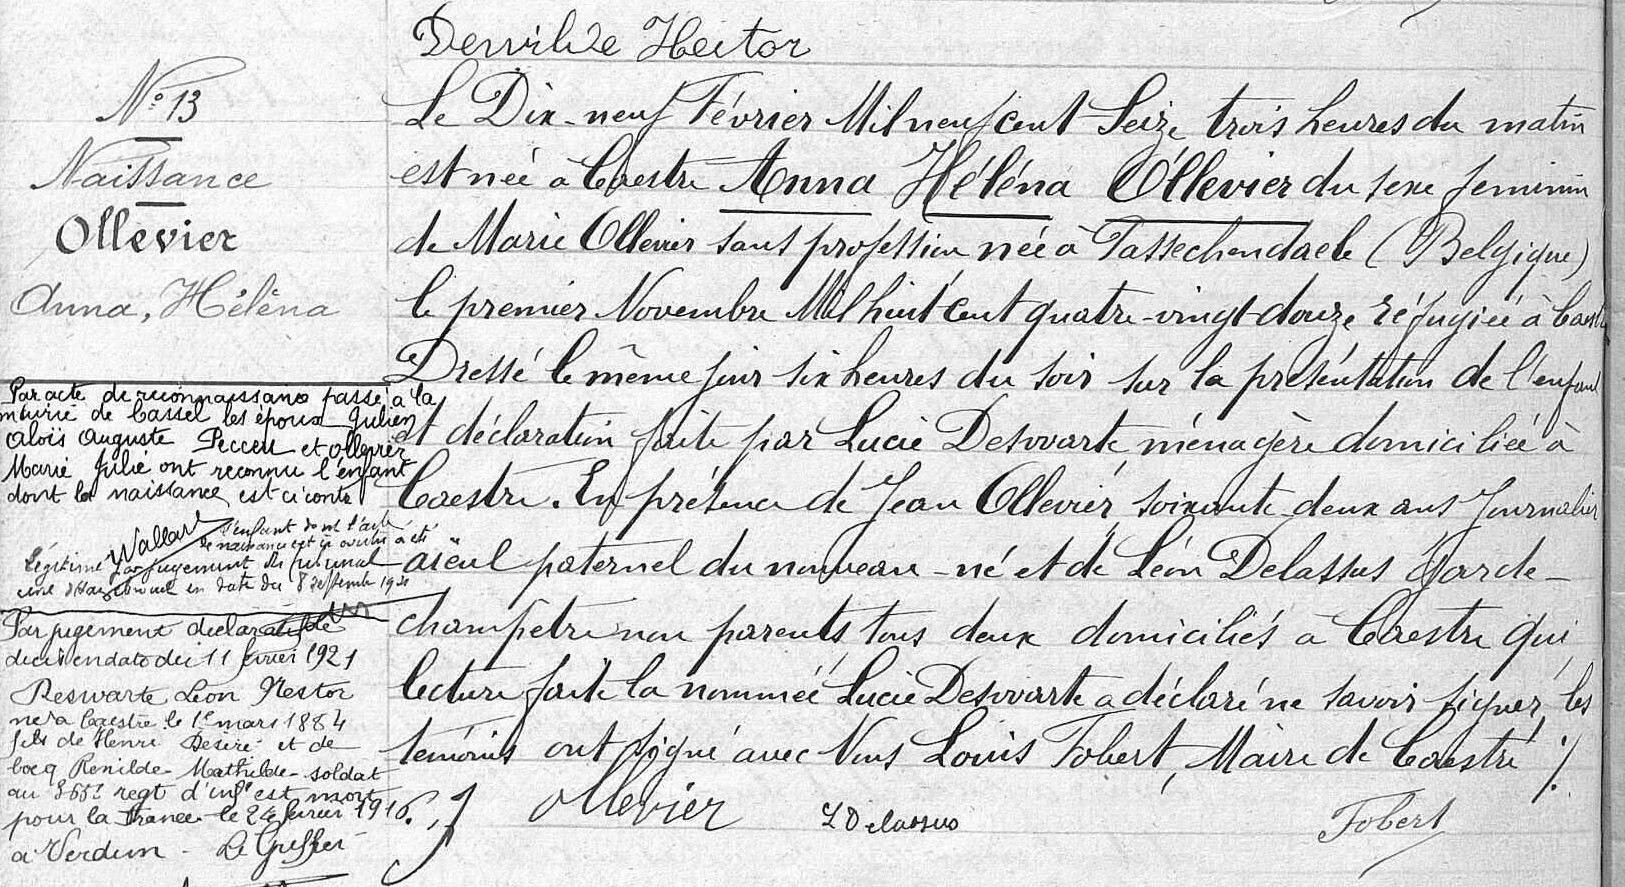 Hector
N° 13
Naissance
Ollevier
Anna, Héléna
Le Dix-neuf Février Mil neuf cent Seize trois heures du matin
est née à Caestre Anna Héléna Ollevier du sexe feminin
de Marie Ollevier sans profession née à Passechendaele (Belgique)
le premier Novembre Mil huit cent quatre-vingt-douze réfugiée à Caestre
Dressé le même jour six heures du soir sur la présentation de l'enfant
et déclaration faite par Lucie Deswarte, ménagère domiciliée à
Caestre. En présence de Jean Ollevier, soixante-deux ans Journalier
aieul paternel du nouveau-né et de Léon Delassus Garde-
champêtre non parents, tous deux domiciliés à Caestre qui,
lecture faite la nommée Lucie Deswarte a déclaré ne savoir signer, les
témoins ont signé avec Nous Louis Fobert, Maire de Caestre ./.
J Ollevier L Delassus Fobert
Par acte de reconnaissance passé à la
mairie de Cassel les époux Julien
Aloïs Auguste et Ollevier
Marie Julie ont reconnu l'enfant
dont la naissance est ci contre
Wallart
L'enfant dont l'acte
de naissance est ci contre a été
Légitimé par jugement du tribunal
civil d'Hazebrouck en date du 8
Par jugement déclaratif de
décès en date du 11 février 1921
Deswarte Léon Nestor
né à Caestre le 1er mars 1884
fils de Henri Désiré et de
Cocq Renilde Mathilde - soldat
au regt d'inf est mort
pour la France le février 1916
à Verdun - Le Greffier